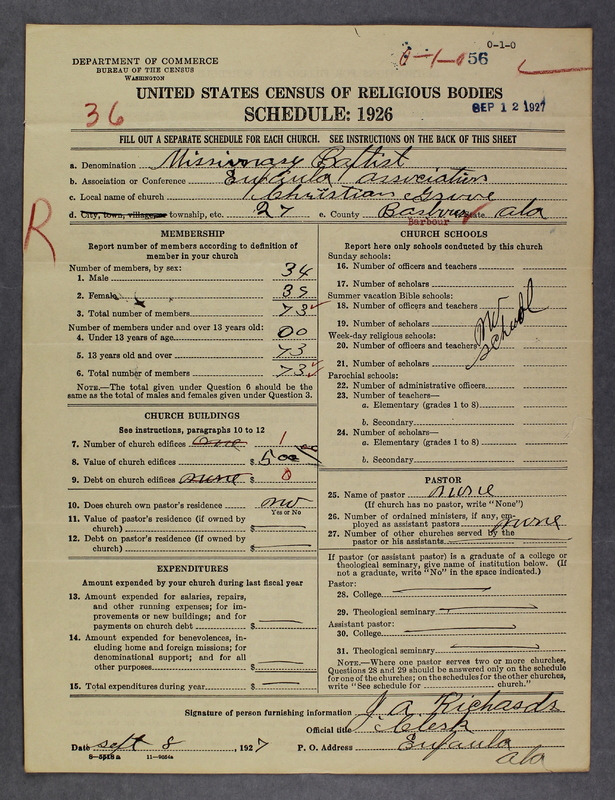 0-1-0
0-1-0 56
DEPARTMENT OF COMMERCE
BUREAU OF THE CENSUS
WASHINGTON
UNITED STATES CENSUS OF RELIGIOUS BODIES
SCHEDULE: 1926
36
SEP 12 1927
FILL OUT A SEPARATE SCHEDULE FOR EACH CHURCH. SEE INSTRUCTIONS ON THE BACK OF THIS SHEET
a. Denomination Missionary Baptist
b. Association or Conference Eufaula Association
c. Local name of church Christian Grove
d. City, town, village, or township, etc. 27 e. County Barbour State ala
Barbour
R
MEMBERSHIP
Report number of members according to definition of
member in your church
Number of members, by sex:
1. Male 34
2. Female 39
3. Total number of members 73
Number of members under and over 13 years old:
4. Under 13 years of age 00
5. 13 years old and over 73
6. Total number of members 73
NOTE.—The total given under Question 6 should be the
same as the total of males and females given under Question 3.
CHURCH BUILDINGS
See instructions, paragraphs 10 to 12
7. Number of church edifices one 1
8. Value of church edifices $ 500
9. Debt on church edifices none $ 0
10. Does church own pastor's residence no
Yes or No
11. Value of pastor's residence (if owned by
church) $
12. Debt on pastor's residence (if owned by
church) $
EXPENDITURES
Amount expended by your church during last fiscal year
13. Amount expended for salaries, repairs,
and other running expenses; for im-
provements or new buildings; and for
payments on church debt $
14. Amount expended for benevolences, in-
cluding home and foreign missions; for
denominational support; and for all
other purposes $
15. Total expenditures during year $
CHURCH SCHOOLS
Report here only schools conducted by this church
Sunday schools:
16. Number of officers and teachers
17. Number of scholars
Summer vacation Bible schools:
18. Number of officers and teachers
19. Number of scholars
Week-day religious schools:
20. Number of officers and teachers
21. Number of scholars
no
school
Parochial schools:
22. Number of administrative officers
23. Number of teachers—
a. Elementary (grades 1 to 8)
b. Secondary
24. Number of scholars—
a. Elementary (grades 1 to 8)
b. Secondary
PASTOR
25. Name of pastor none
(If church has no pastor, write "None")
26. Number of ordained ministers, if any, em-
ployed as assistant pastors none
27. Number of other churches served by the
pastor or his assistants
If pastor (or assistant pastor) is a graduate of a college or
theological seminary, give name of institution below. (If
not a graduate, write "No" in the space indicated.)
Pastor:
28. College
29. Theological seminary
Assistant pastor:
30. College
31. Theological seminary
NOTE.—Where one pastor serves two or more churches,
Questions 28 and 29 should be answered only on the schedule
for one of the churches; on the schedules for the other churches,
write "See schedule for church."
Signature of person furnishing information J. A Richards
Official title Clerk
Date Sept 8, 1927 P. O. Address Eufaula
ala
8-5518a 11-9054a